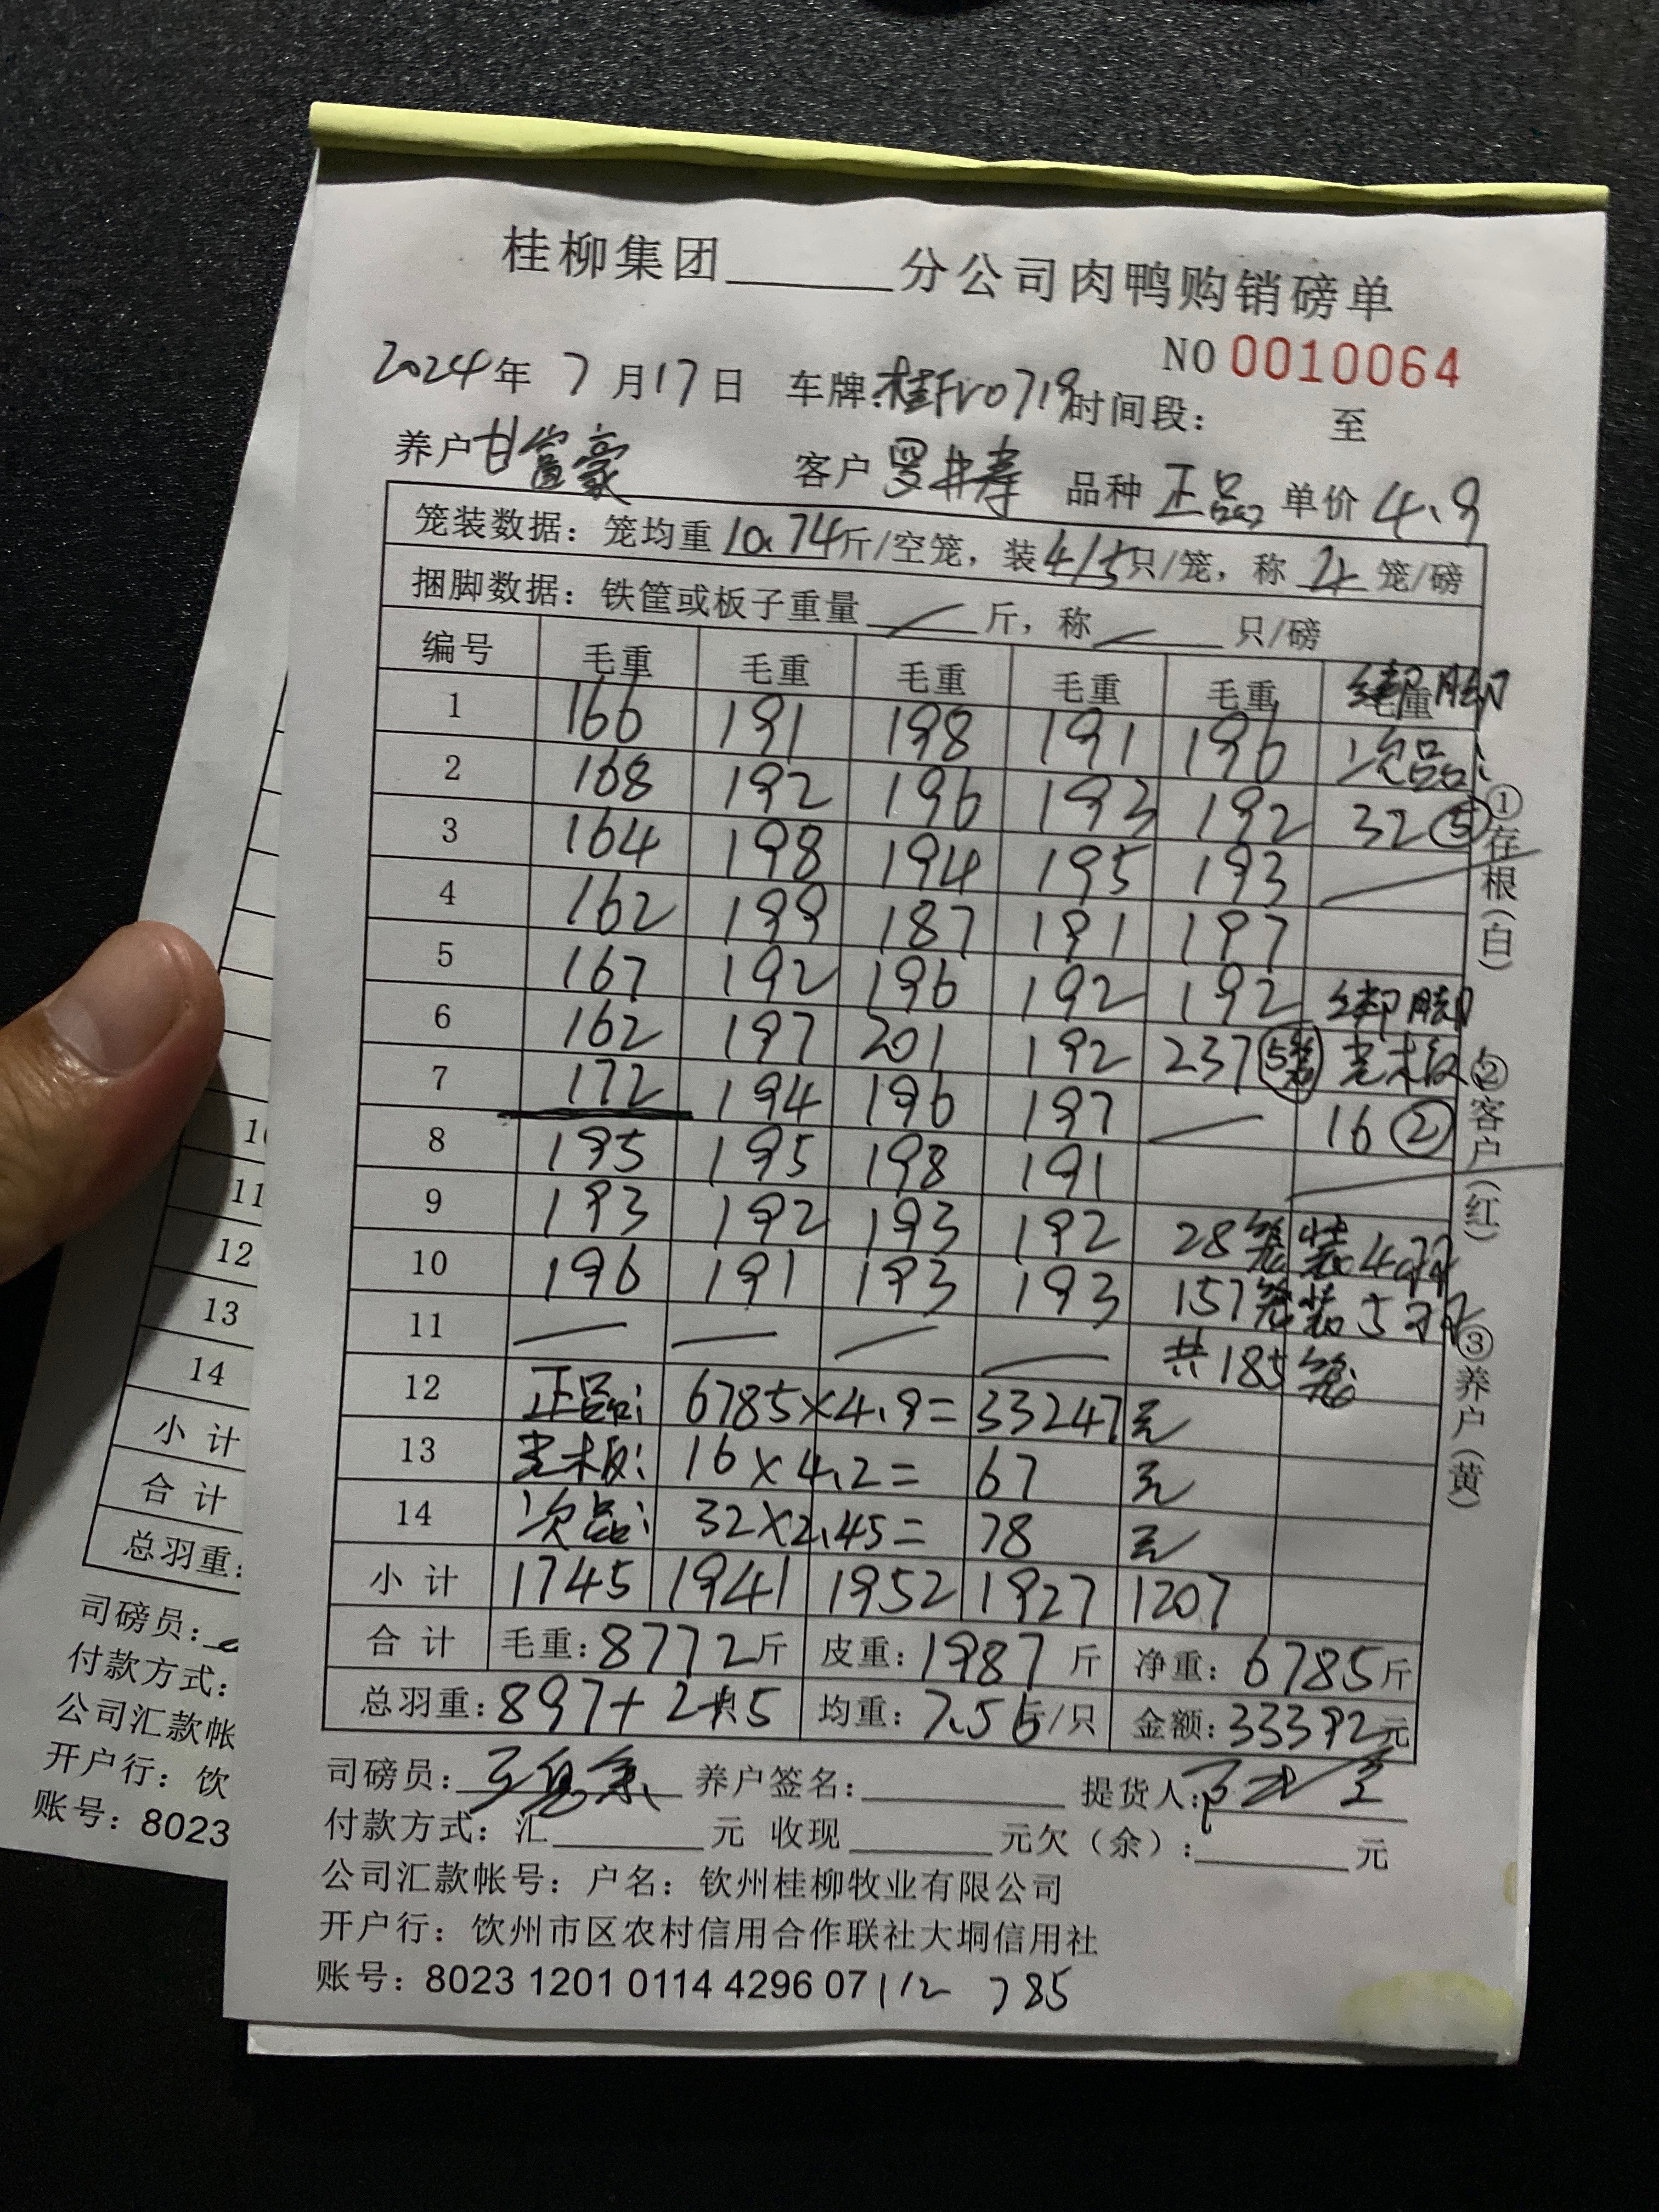 桂柳集团______分公司肉鸭购销磅单
NO 0010064
2024年 7月17日 车牌:桂FV0719时间段: 至
养户甘富豪 客户 罗井寿 品种 正品 单价 4.9
笼装数据:笼均重10.74斤/空笼,装4/5只/笼,称 4 笼/磅
捆脚数据:铁筐或板子重量 / 斤,称 / 只/磅
编号 毛重 毛重 毛重 毛重 毛重 毛重 绑脚
1 166 191 198 191 196 次品:
2 168 192 196 193 192 32⑤
3 164 198 194 195 193
4 162 199 187 191 197
5 167 192 196 192 192 绑脚
6 162 197 201 192 237(5笼) 光木板:
7 172 194 196 197 — 16②
8 195 195 198 191
9 193 192 193 192 28笼装4只
10 196 191 193 193 157笼装5只
11 — — — — 共185笼
12 正品: 6785×4.9= 33247元
13 光木板: 16×4.2= 67 元
14 次品: 32×2.45= 78 元
小计 1745 1941 1952 1927 1207
合计 毛重:8772斤 皮重:1987斤 净重:6785斤
总羽重:897+2+5 均重:7.56斤/只 金额:33392元
①存根(白)
②客户(红)
③养户(黄)
司磅员: 养户签名: 提货人:
付款方式:汇______元 收现______元欠(余):______元
公司汇款帐号:户名:钦州桂柳牧业有限公司
开户行:饮州市区农村信用合作联社大垌信用社
账号:8023 1201 0114 4296 07 112 785
10
11
12
13
14
小计
合计
总羽重:
司磅员:
付款方式:
公司汇款帐
开户行:饮
账号:8023